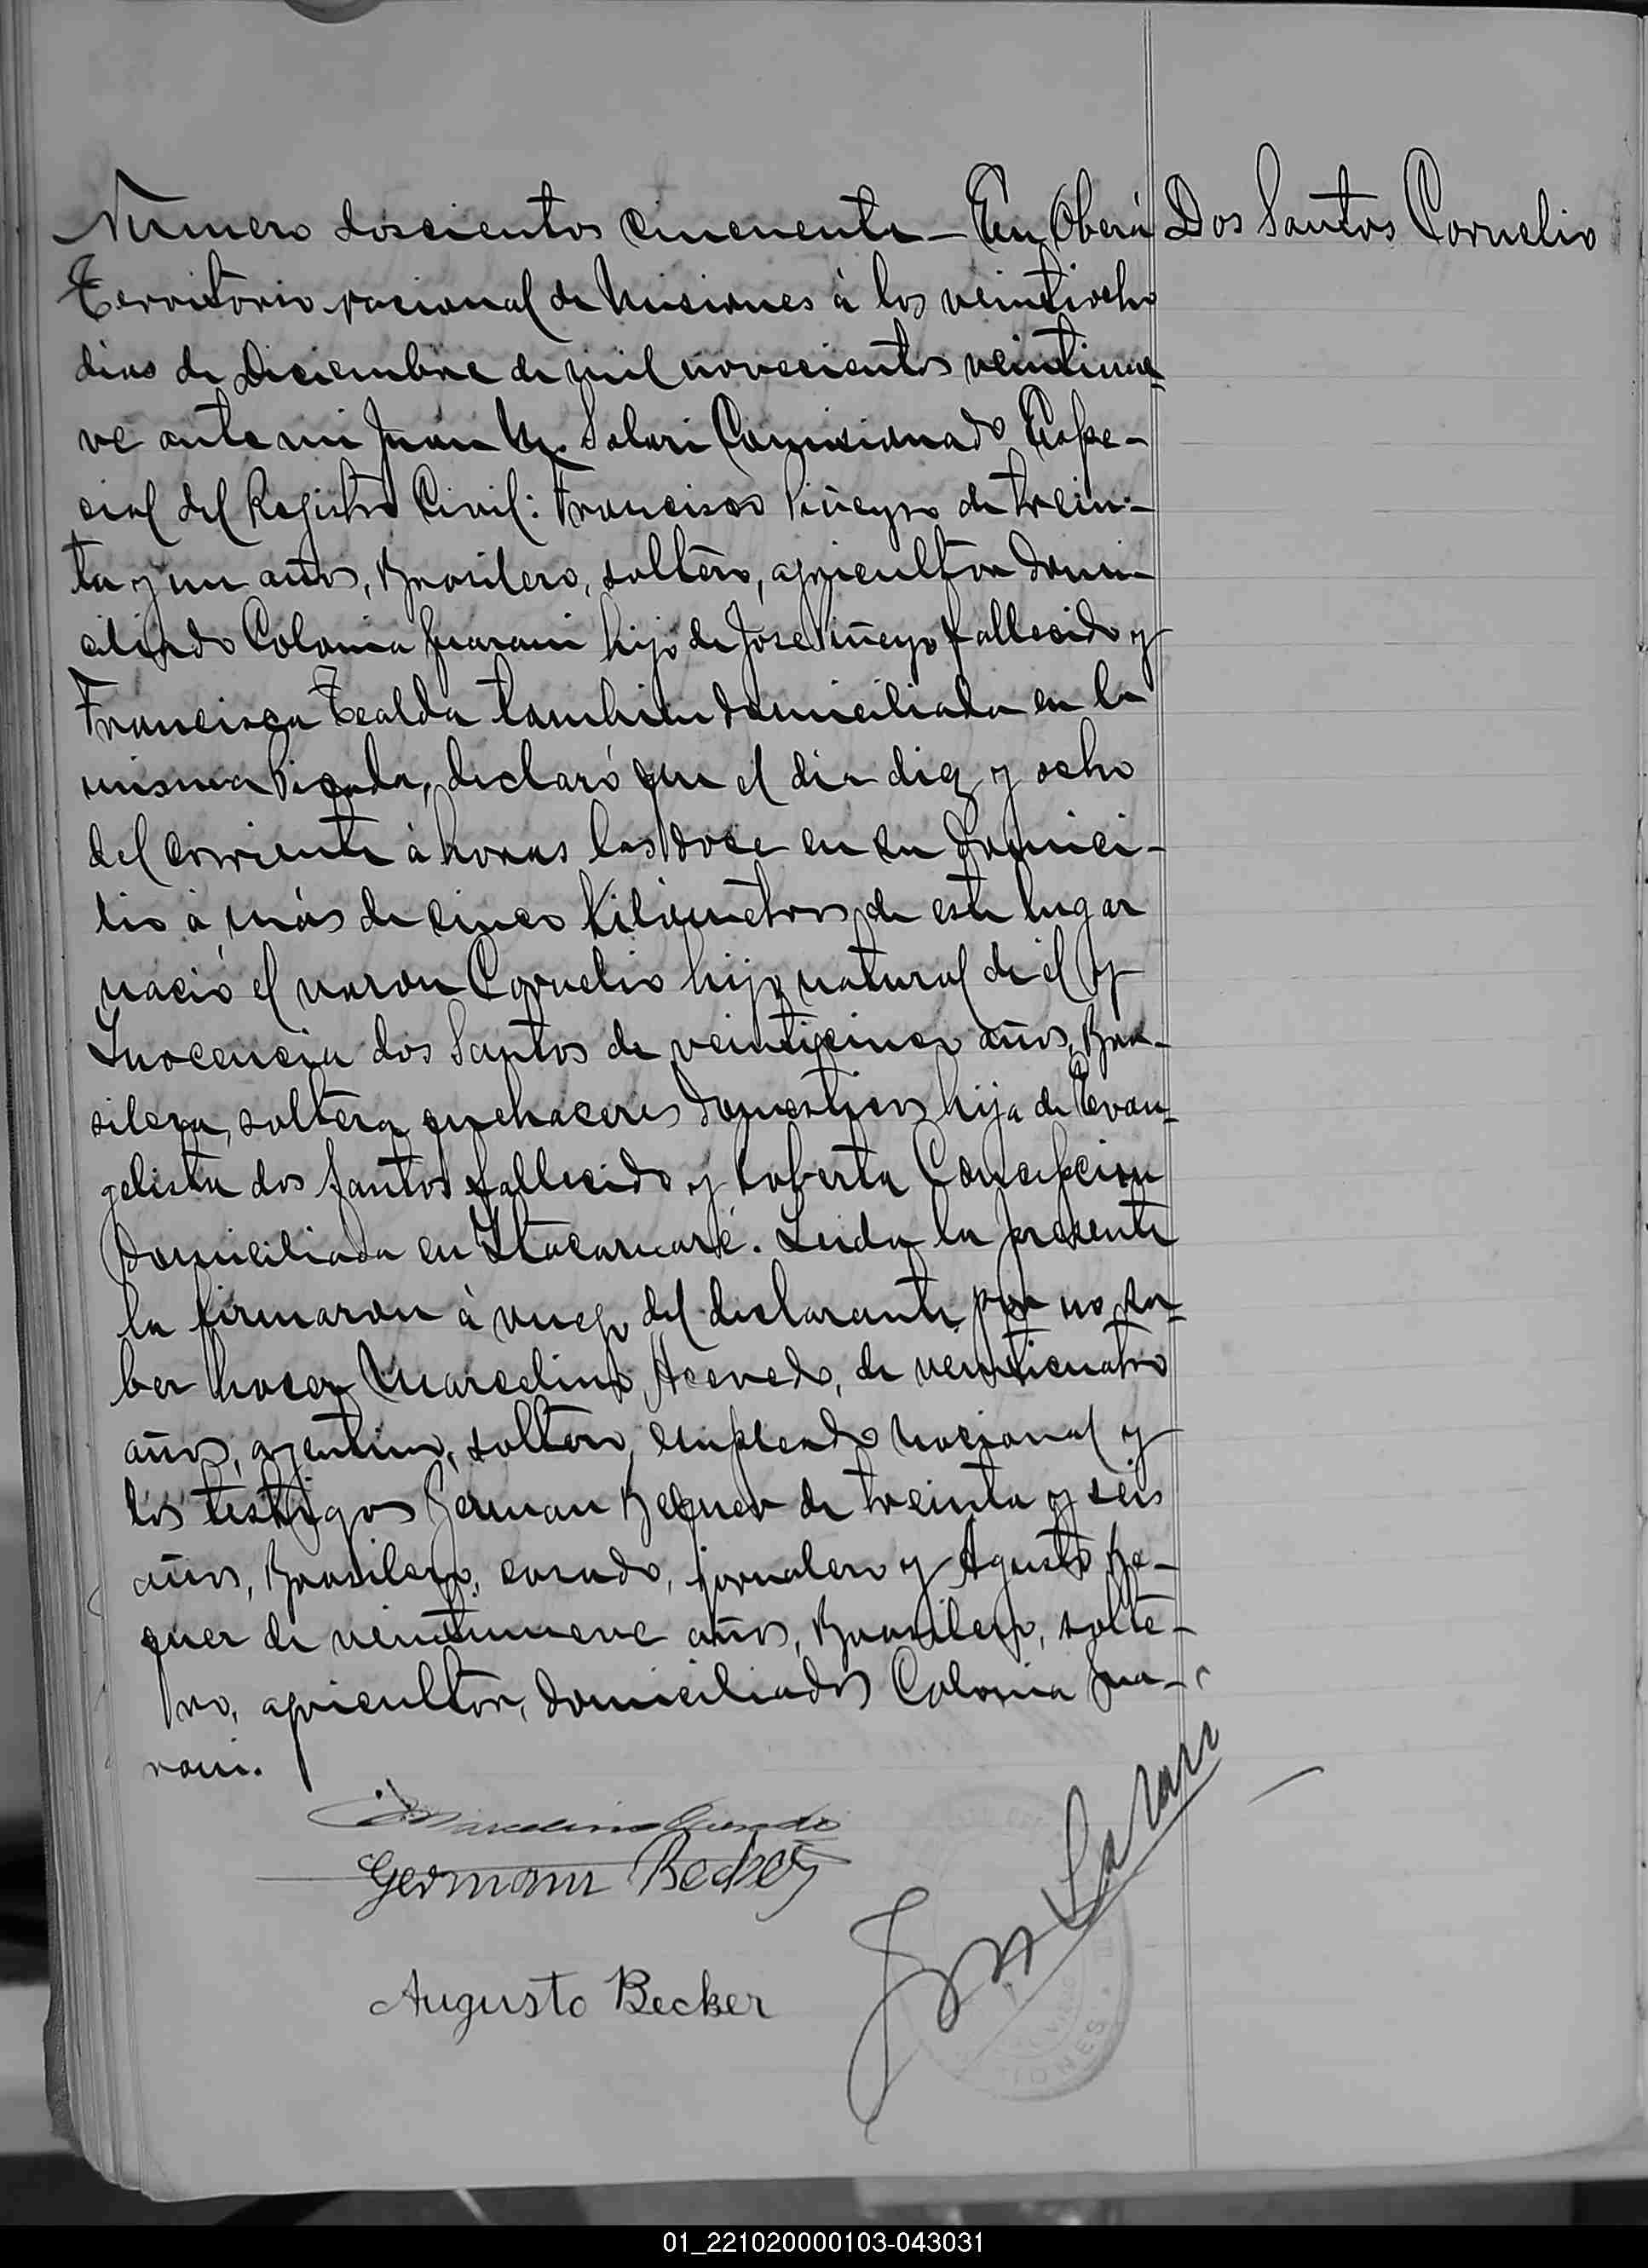 Numero doscientos cincuenta — En Oberá
Dos Santos Cornelio
Territorio nacional de Misiones à los veintiocho
dias de Diciembre de mil novecientos veintinue-
ve ante mi Juan M. Solari Comisionado Espe-
cial del Registro Civil: Francisco Piñeyro de trein-
ta y un años, Brasilero, soltero, agricultor domi-
ciliado Colonia Guarani hijo de Jose Piñeyro fallecido y
Francisca Tealda tambien domiciliada en la
misma Picada, declaró que el dia diez y ocho
del corriente à horas las doce en su domici-
lio à más de cinco Kilometros de este lugar
nació el varon Cornelio hijo natural de el y
Inocencia dos Santos de veinticinco años, Bra-
silera, soltera, quehaceres domesticos hija de Evan-
gelista dos Santos fallecido y Roberta Concepcion
domiciliada en Itacaruaré. Leida la presente
la firmaron à ruego del declarante por no sa-
ber hacer Marcelino Acevedo, de veinticuatro
años, argentino, soltero, empleado nacional y
los testigos German Bequer de treinta y seis
años, Brasilero, casado, jornalero y Agusto Be-
quer de veintinueve años, Brasilero, solte-
ro, agricultor, domiciliados Colonia Gua-
rani.
Marcelino Acevedo
Germann Becker
Augusto Becker
Solari
01_221020000103-043031